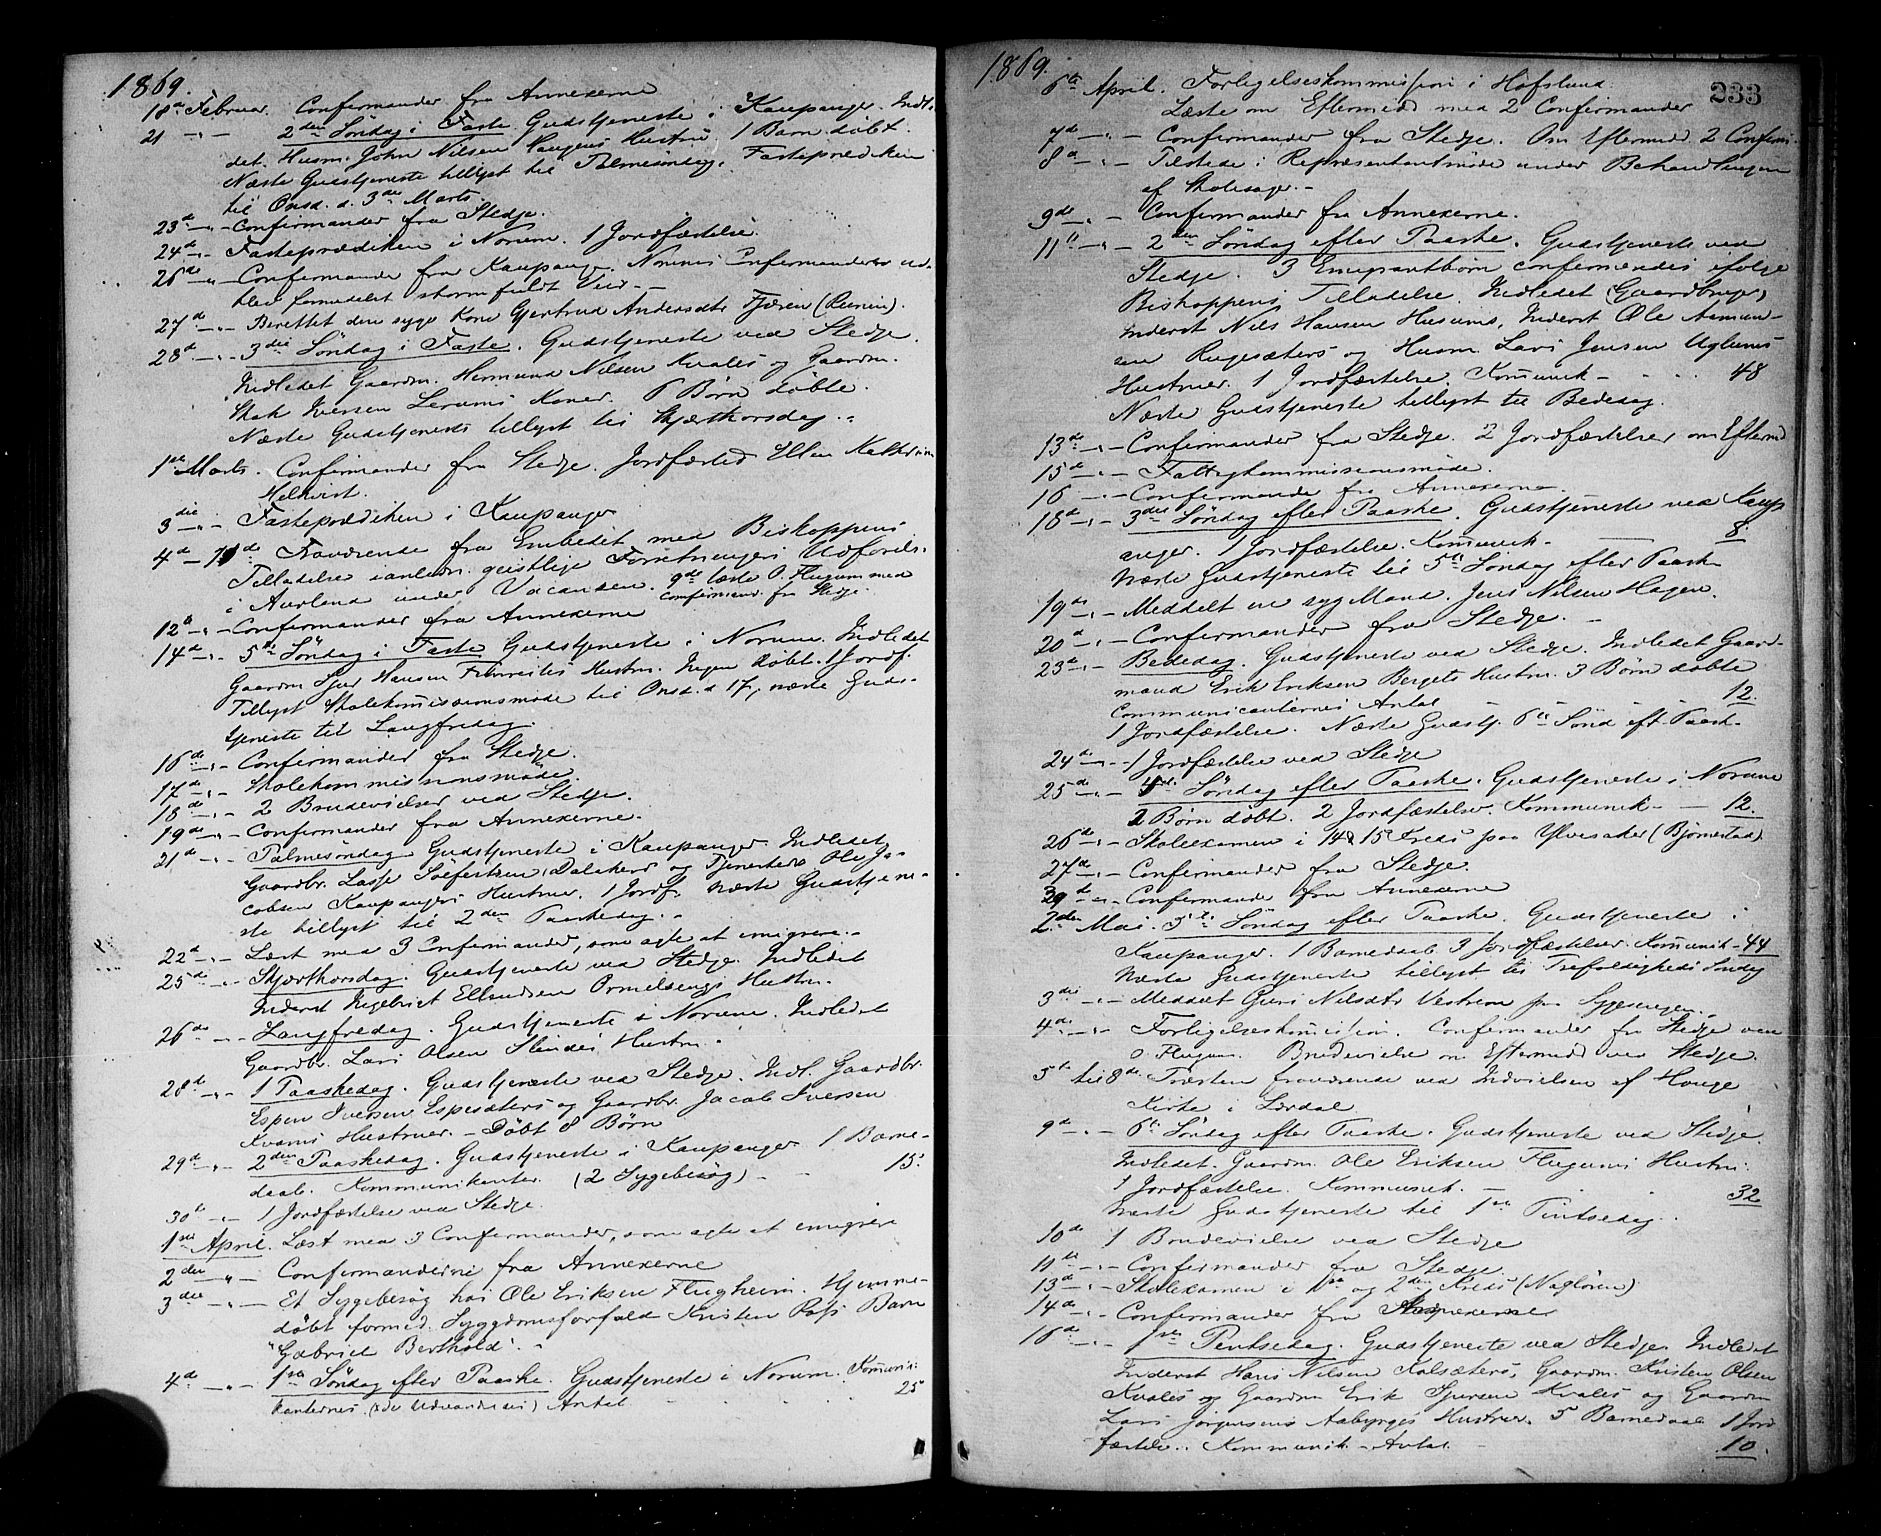 1869.
18de Februar. Confirmander fra Annexerne
21 -"- 2den Søndag i Faste. Gudstjeneste i Kaupanger. Indle-
det. Husm. John Nilsen Haugens Hustru. 1 Barn døbt.
Næste Gudstjeneste tillyst til Palmesøndag. Fasteprædiken
til Onsd. d. 3die Marts.
23de -"- Confirmander fra Stedje.
24de -"- Fasteprædiken i Norum. 1 Jordfæstelse.
26de -"- Confirmander fra Kaupanger. Norums Confirmander ud-
blev formedelst stormfuldt Veir.-
27de -"- Berettet den syge Kone Gjertrud Andersdtr Fjæren
28de -"- 3die Søndag i Faste. Gudstjeneste ved Stedje.
Indledet Gaardm. Hermund Nilsen Kvales og Gaardm.
Iversen Lerums Koner. 6 Børn døbte.
Næste Gudstjeneste tillyst til Skjærthorsdag.-
1ste Marts. Confirmander fra Stedje. Jordfæsted Ellen Kathrine
3die -"- Fasteprædiken i Kaupanger
4de - 11de Fraværende fra Embedet med Biskoppens
Tilladelse i anledn. geistlige Forretningers Udførelse
i Aurland under Vacansen. 9de læste O. Flugum med
Confirmand. fra Stedje.
12te -"- Confirmander fra Annexerne
14de -"- 5te Søndag i Faste Gudstjeneste i Norum. Indledet
Gaardm Sjur Hansen Fimreites Hustru. Ingen døbt. 1 Jordf.
Tillyst Skolekomissionsmøde til Onsd. d 17, næste Guds-
tjeneste til Langfredag.
16de -"- Confirmander fra Stedje.
17de -"- Skolekommissionsmøde.
18de -"- 2 Brudevielser ved Stedje.
19de -"- Confirmander fra Annexerne.
21de -"- Palmesøndag Gudstjeneste i Kaupanger. Indledet
Gaardbr. Lasse Dalaker og Tjenestedr. Ole Ja-
cobsen Kaupangers Hustruer. 1 Jordf. Næste Gudstjene-
ste tillyst til 2den Paaskedag.-
22de -"- Læst med 3 Confirmander, som agte at emigrere.-
25de -"- Skjærthorsdag. Gudstjeneste ved Stedje. Indledet
Inderst Ingebrigt Ormelsengs Hustru.
26de -"- Langfredag. Gudstjeneste i Norum. Indledet
Gaardbr. Lars Olsen Slindes Hustru.
28de -"- 1 Paaskedag. Gudstjeneste ved Stedje. Indl. Gaardbr.
Espen Iversen Espesæters og Gaardbr. Jacob Iversen
Kvams Hustruer. - Døbt 8 Børn
29de -"- 2den Paaskedag. Gudstjeneste i Kaupanger 1 Barne-
daab. Kommunikanter. (2 Sygebesøg) - 15.
30te -"- 1 Jordfæstelse ved Stedje.
1ste April. Læst med 3 Confirmander, som agte at emigrere
2den -"- Confirmanderne fra Annexerne
3die -"- Et Sygebesøg hos Ole Eriksen Flugheim. Hjemme-
døbt formed. Sygdomsforfald Kristen Barn
"Gabriel Berthold".-
4de -"- 1ste Søndag efter Paaske. Gudstjeneste i Norum. Komuni-
kanternes Antal 25
1869.
233
6te April. Forligelseskommission i Hofslund.
Læste om Eftermidd med 2 Confirmander
7de -"- Confirmander fra Stedje. Om Eftermidd. 2 Confirm.
8de -"- Tilstede i Repræsentantmøde under Behandlingen
af Skolesager.-
9de -"- Confirmander fra Annexerne.
11te -"- 2den Søndag efter Paaske. Gudstjeneste ved
Stedje. 3 Emigrantbørn confirmeredes ifølge
Biskoppens Tilladelse. Indledet (Gaardbruger)
Inderst Nils Hansen Husums, Inderst Ole Aamun-
sen og Husm. Lars Jensen Uglums
Hustruer. 1 Jordfæstelse. Komunik - 48
Næste Gudstjeneste tillyst til Bededag.
13de -"- Confirmander fra Stedje. 2 Jordfæstelser om Efterm
15de -"- Fattigkommissionsmøde.
16 -"- Confirmander fra Annexerne
18de -"- 3die Søndag efter Paaske. Gudstjeneste ved Kaup
anger. 1 Jordfæstelse. Komunik - 8
Næste Gudstjeneste til 5te Søndag efter Paaske
19de -"- Meddelt en syg Mand. Jens Nilsen Hagen.
20de -"- Confirmander fra Stedje. -
23de -"- Bededag. Gudstjeneste ved Stedje. Indledet Gaard-
mand Erik Eriksen Bergets Hustru. 3 Børn døbte
Communicanternes Antal - 12.
1 Jordfæstelse. Næste Gudstj. 6te Sønd. eft. Paask-
24de -"- 1 Jordfæstelse ved Stedje
25de -"- 4de Søndag efter Paaske. Gudstjeneste i Norum
2 Børn døbt. 2 Jordfæstelser. Kommunik - 12.
26de -"- Skoleexamen i 14 & 15 Kreds paa Ylvesaker (Bjørnestad)
27de -"- Confirmander fra Stedje.
29de -"- Confirmander fra Annexerne
2den Mai. 5te Søndag efter Paaske. Gudstjeneste i
Kaupanger. 1 Barnedaab. 3 Jordfæstelser. Komunik - 44
Næste Gudstjeneste tillyst til Trefoldigheds Søndag
3die -"- Meddelt Guri Nilsdtr Vestrem paa Sygesengen.-
4de -"- Forligelseskomission. Confirmander fra Stedje ved
O. Flugum. Brudevielse om Eftermidd ved Stedje.
5te til 8de Præsten fraværende ved Indvielsen af Hauge
Kirke i Lærdal
9de -"- 6te Søndag efter Paaske. Gudstjeneste ved Stedje.
Indledet Gaardm. Ole Eriksen Flugums Hustru.
1 Jordfæstelse. Kommunik. - 32
Næste Gudstjeneste til 1ste Pintsedag.
10de 1 Brudevielse ved Stedje
11te -"- Confirmander fra Stedje.
13de -"- Skoleexamen i 1ste og 2den Kreds (Nagløren)
14de -"- Confirmander fra Annexerne
16de -"- 1ste Pintsedag. Gudstjeneste ved Stedje. Indledet
Inderst Hans Nilsen Kalsæters, Gaardm. Kristen Olsen
Kvales og Gaardm Erik Sjursen Kvales og Gaardm
Lars Jørgensens Aabyrges Hustruer. 5 Barnedaab 1 Jord
fæstelse. Kommunik - Antal - 10.